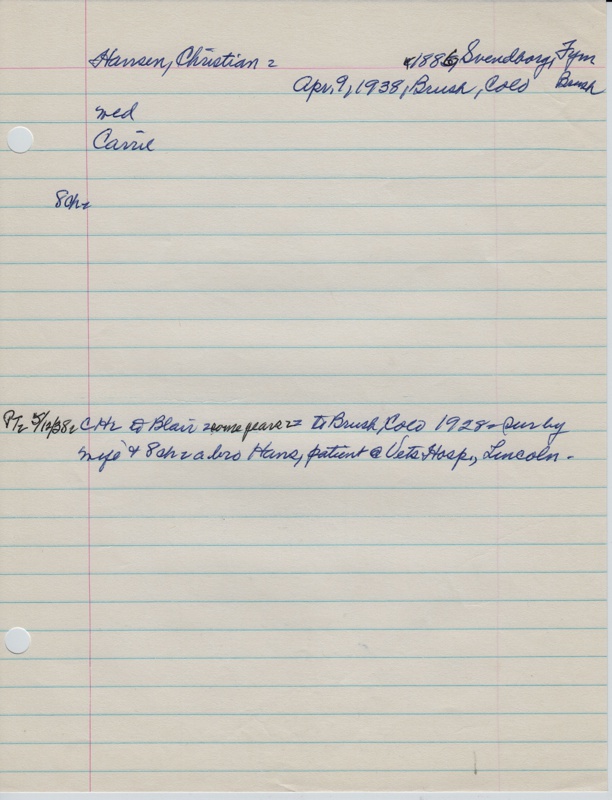 Hansen, Christian = c1886, Svendborg, Fyn
Apr. 9, 1938, Brush, Colo Brush
med
Carrie
8ch=
PT= 5/12/38= CH= to Blair = some years = to Brush, Colo 1928 = Sur by
wife + 8ch = a bro Hans, patient @ Vets Hosp., Lincoln -